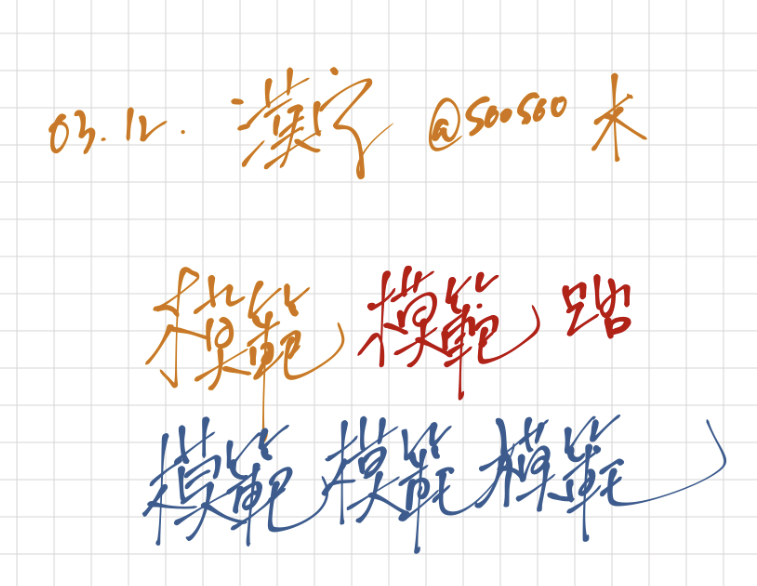 03.12. 漢字 @soosoo 水
模範 模範 踏
模範 模範 模範